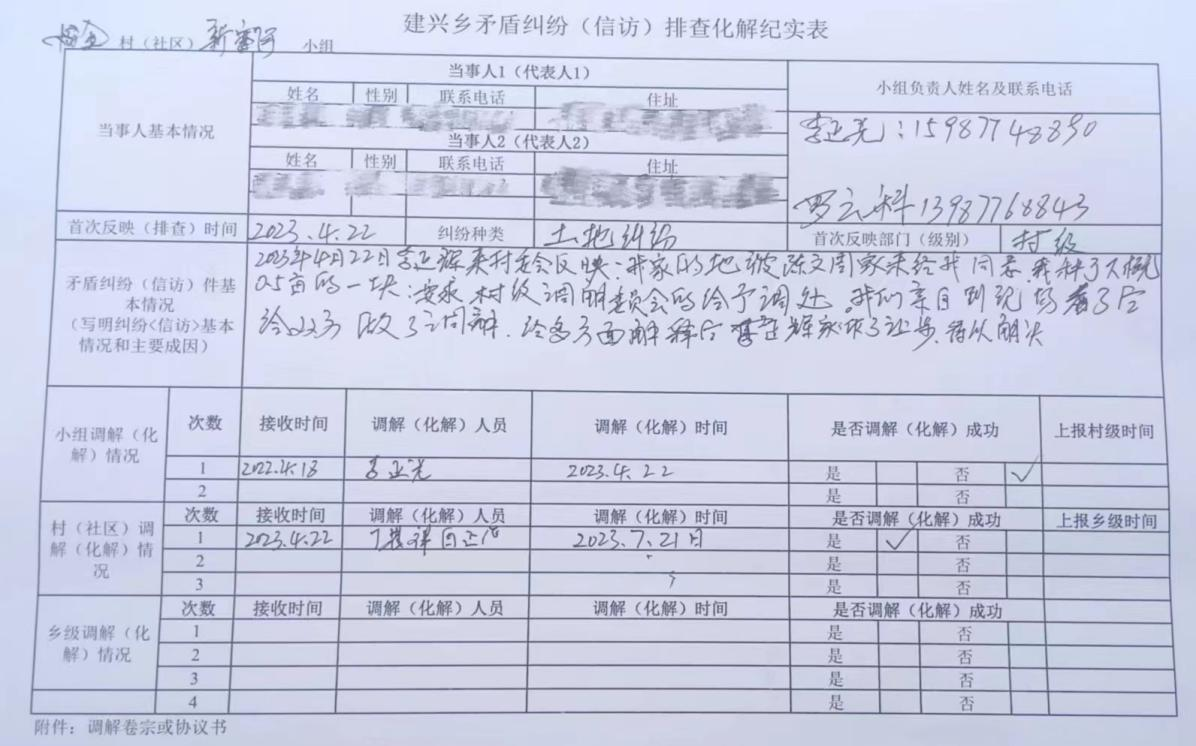 建兴乡矛盾纠纷（信访）排查化解纪实表
村（社区） 小组
当事人基本情况
当事人1（代表人1）
小组负责人姓名及联系电话
姓名 性别 联系电话 住址
李正光：15987748890
当事人2（代表人2）
姓名 性别 联系电话 住址
罗云科13987768843
首次反映（排查）时间 2023.4.22 纠纷种类 土地纠纷 首次反映部门（级别） 村级
矛盾纠纷（信访）件基本情况
（写明纠纷<信访>基本情况和主要成因）
2023年4月22日李正辉来村委会反映：我家的地被陈文周家未经我同意，栽种了大概
0.5亩的一块：要求村级调解委员会给予调处。我们亲自到现场看了后
给双方做了调解，经多方面解释后李正辉家做了让步，得以解决
小组调解（化解）情况
次数 接收时间 调解（化解）人员 调解（化解）时间 是否调解（化解）成功 上报村级时间
1 2022.4.18 李正光 2023.4.22 是 否 ✓
2 是 否
村（社区）调解（化解）情况
次数 接收时间 调解（化解）人员 调解（化解）时间 是否调解（化解）成功 上报乡级时间
1 2023.4.22 2023.7.21日 是 ✓ 否
2 是 否
3 是 否
乡级调解（化解）情况
次数 接收时间 调解（化解）人员 调解（化解）时间 是否调解（化解）成功
1 是 否
2 是 否
3 是 否
4 是 否
附件：调解卷宗或协议书